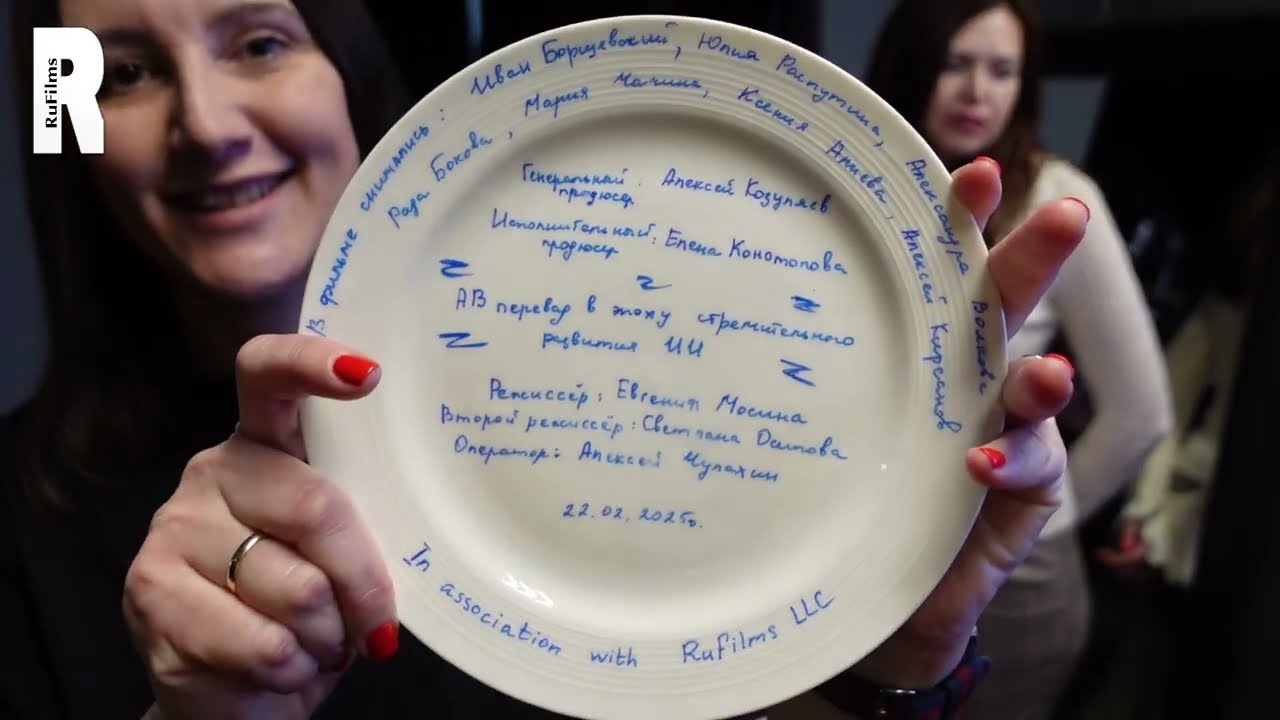 RuFilms
В фильме снимались: Иван Борщевский, Юлия Распутина, Александра Волкова
Рада Бокова, Мария Мачина, Ксения Алиева, Алексей Кирсанов
Генеральный : Алексей Козуляев
продюсер
Исполнительный : Елена Конотопова
продюсер
АВ перевод в эпоху стремительного
развития ИИ
Режиссёр: Евгения Мосина
Второй режиссёр: Светлана Осипова
Оператор: Алексей Чулахин
22.02.2025г.
In association with RuFilms LLC